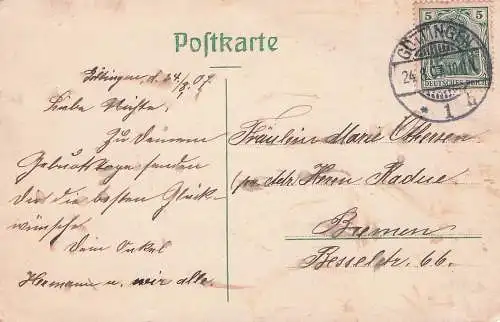 Postkarte
5 5
DEUTSCHES REICH
GÖTTINGEN
24.8.07
* 1 h
Göttingen, d. 24/8.07
Liebe Nichte.
Zu Deinem
Geburtstage senden
Dir die besten Glück-
wünsche.
Dein Onkel
Hermann u. wir alle.
Fräulein Marie
pr. Adr. Herrn Radue.
Bremen
Besselstr. 66.